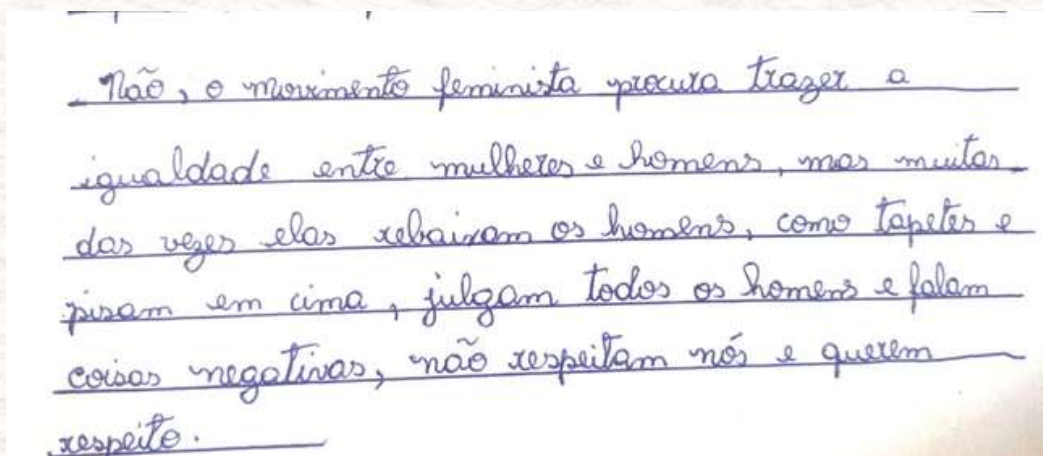 Não, o movimento feminista procura trazer a
igualdade entre mulheres e homens, mas muitas
das vezes elas rebaixam os homens, como tapetes e
pisam em cima, julgam todos os homens e falam
coisas negativas, não respeitam nós e querem
respeito.